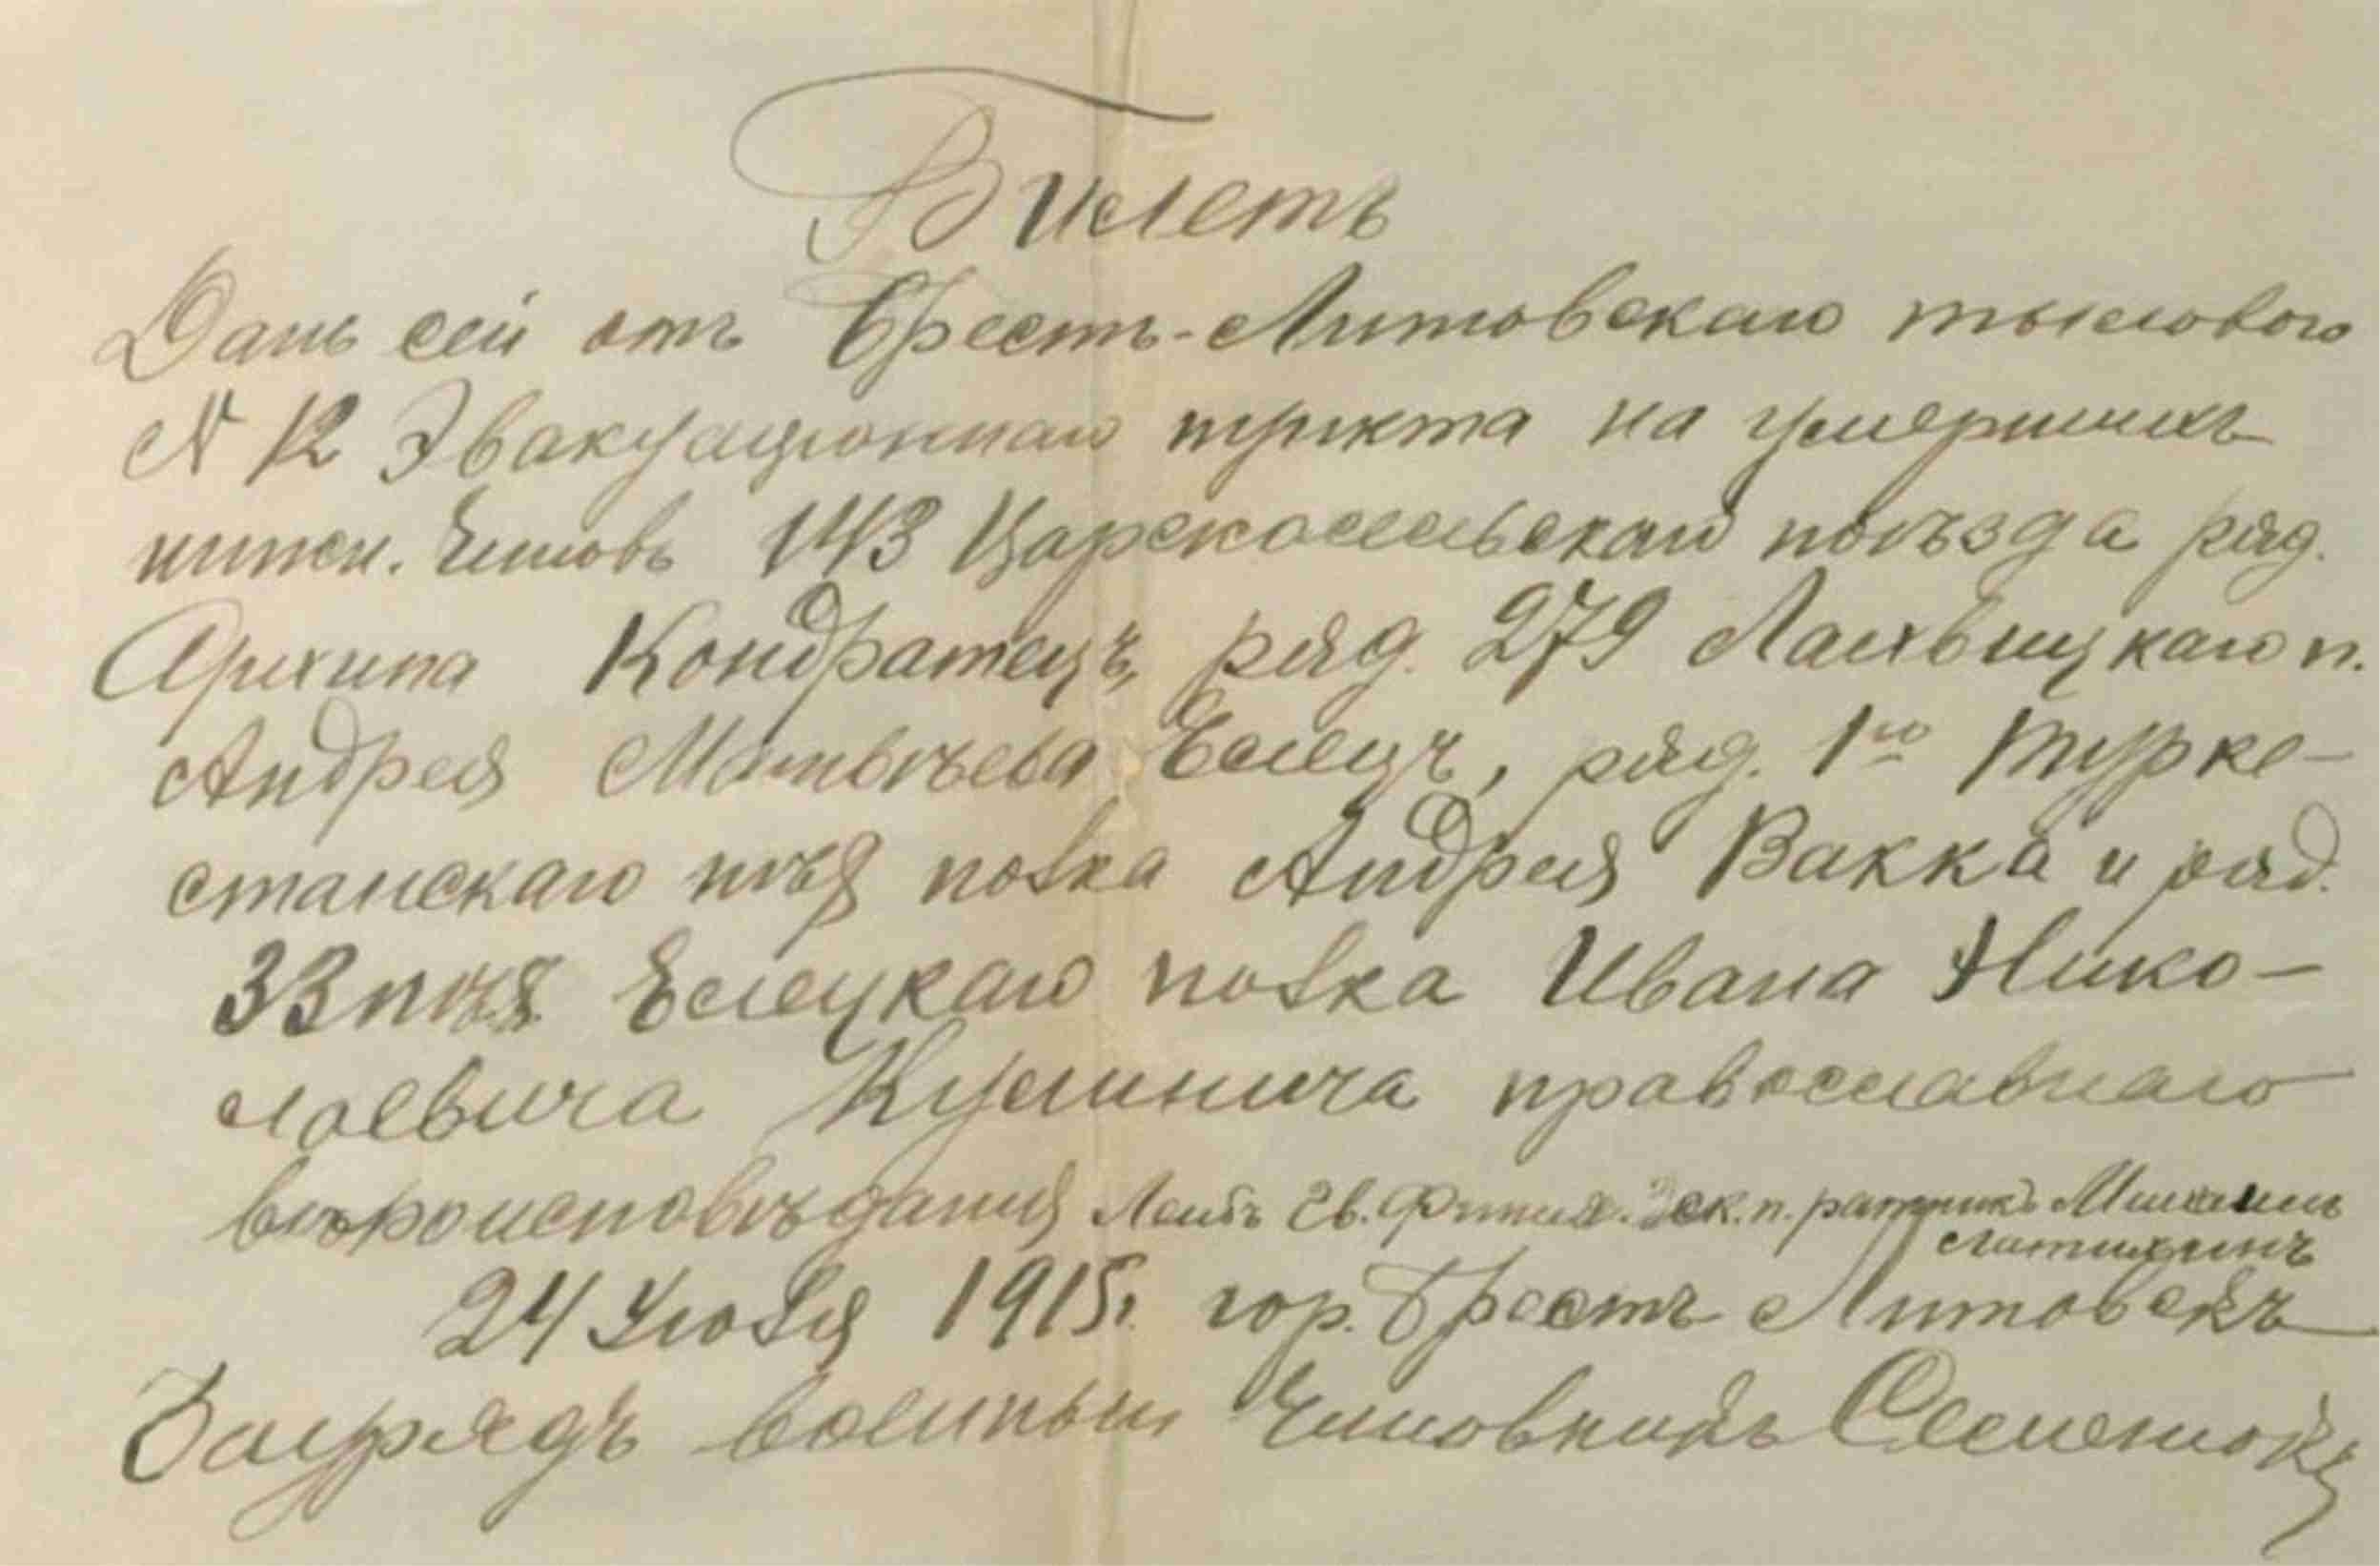 Билетъ
Данъ сей отъ Брестъ-Литовскаго тылового
№ 12 Эвакуаціоннаго пункта на умершихъ
нижн. чиновъ 143 Царскосельскаго поѣзда ряд.
Архипа Кондратецъ, ряд. 279 Лохвицкаго п.
Андрея Матвѣева Елецъ, ряд. 1го Турке-
станскаго пѣх полка Андрея Вакка и ряд.
33 пѣх Елецкаго полка Ивана Нико-
лаевича Кулинича православнаго
вѣроисповѣданія Лейбъ Гв. Финлянд. п. ратникъ Михаилъ
24 Іюля 1915г. гор. Брестъ Литовскъ
Заурядъ военный Чиновникъ Семенюкъ